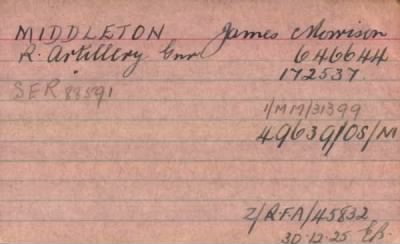 MIDDLETON James Morrison
R. Artillery Gnr 646644
172537.
SER 88591
1/MM/31399
49639/OS/M
2/RFA/45832
30.12.25 ER.